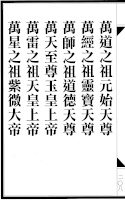 萬道之祖元始天尊
萬經之祖靈寶天尊
萬師之祖道德天尊
萬天至尊玉皇上帝
萬雷之祖天皇上帝
萬星之祖紫微大帝